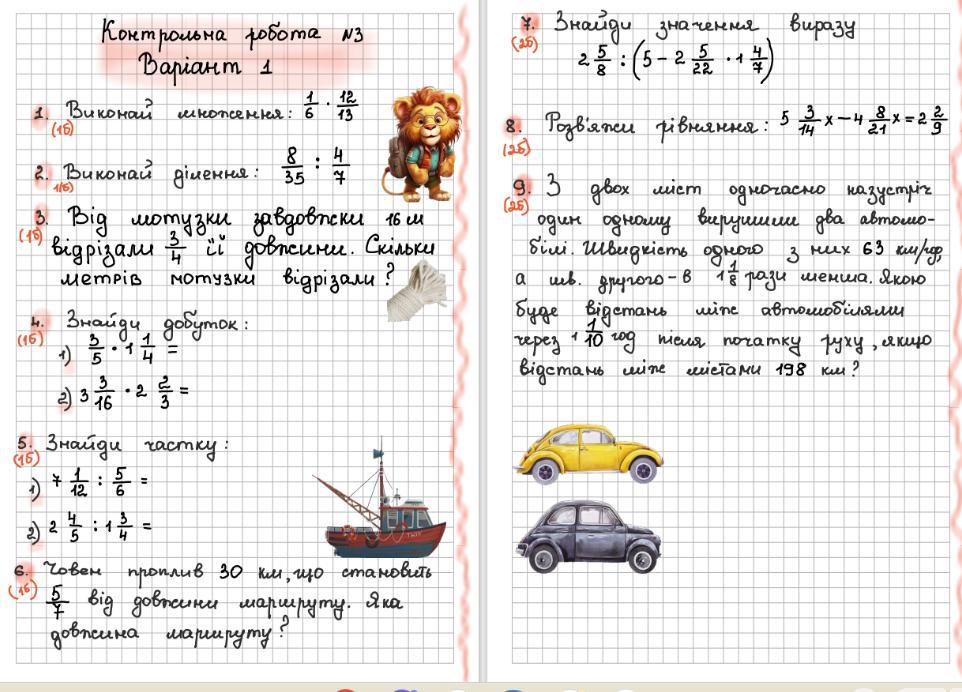 Контрольна робота №3
Варіант 1
1. Виконай множення: 1/6 · 12/13
(1б)
2. Виконай ділення: 8/35 : 4/7
1(б)
3. Від мотузки завдовжки 16 м
(1б)
відрізали 3/4 її довжини. Скільки
метрів мотузки відрізали?
4. Знайди добуток:
(1б)
1) 3/5 · 1 1/4 =
2) 3 3/16 · 2 2/3 =
5. Знайди частку:
(1б)
1) 7 1/12 : 5/6 =
2) 2 4/5 : 1 3/4 =
6. Човен проплив 30 км, що становить
(1б)
5/7 від довжини маршруту. Яка
довжина маршруту?
7. Знайди значення виразу
(2б)
2 5/8 : (5 - 2 5/22 · 1 4/7)
8. Розв'яжи рівняння: 5 3/14 x - 4 8/21 x = 2 2/9
(2б)
9. З двох міст одночасно назустріч
(2б)
один одному вирушили два автомо-
білі. Швидкість одного з них 63 км/год,
а шв. другого - в 1 1/8 рази менша. Якою
буде відстань між автомобілями
через 1 1/10 год після початку руху, якщо
відстань між містами 198 км?